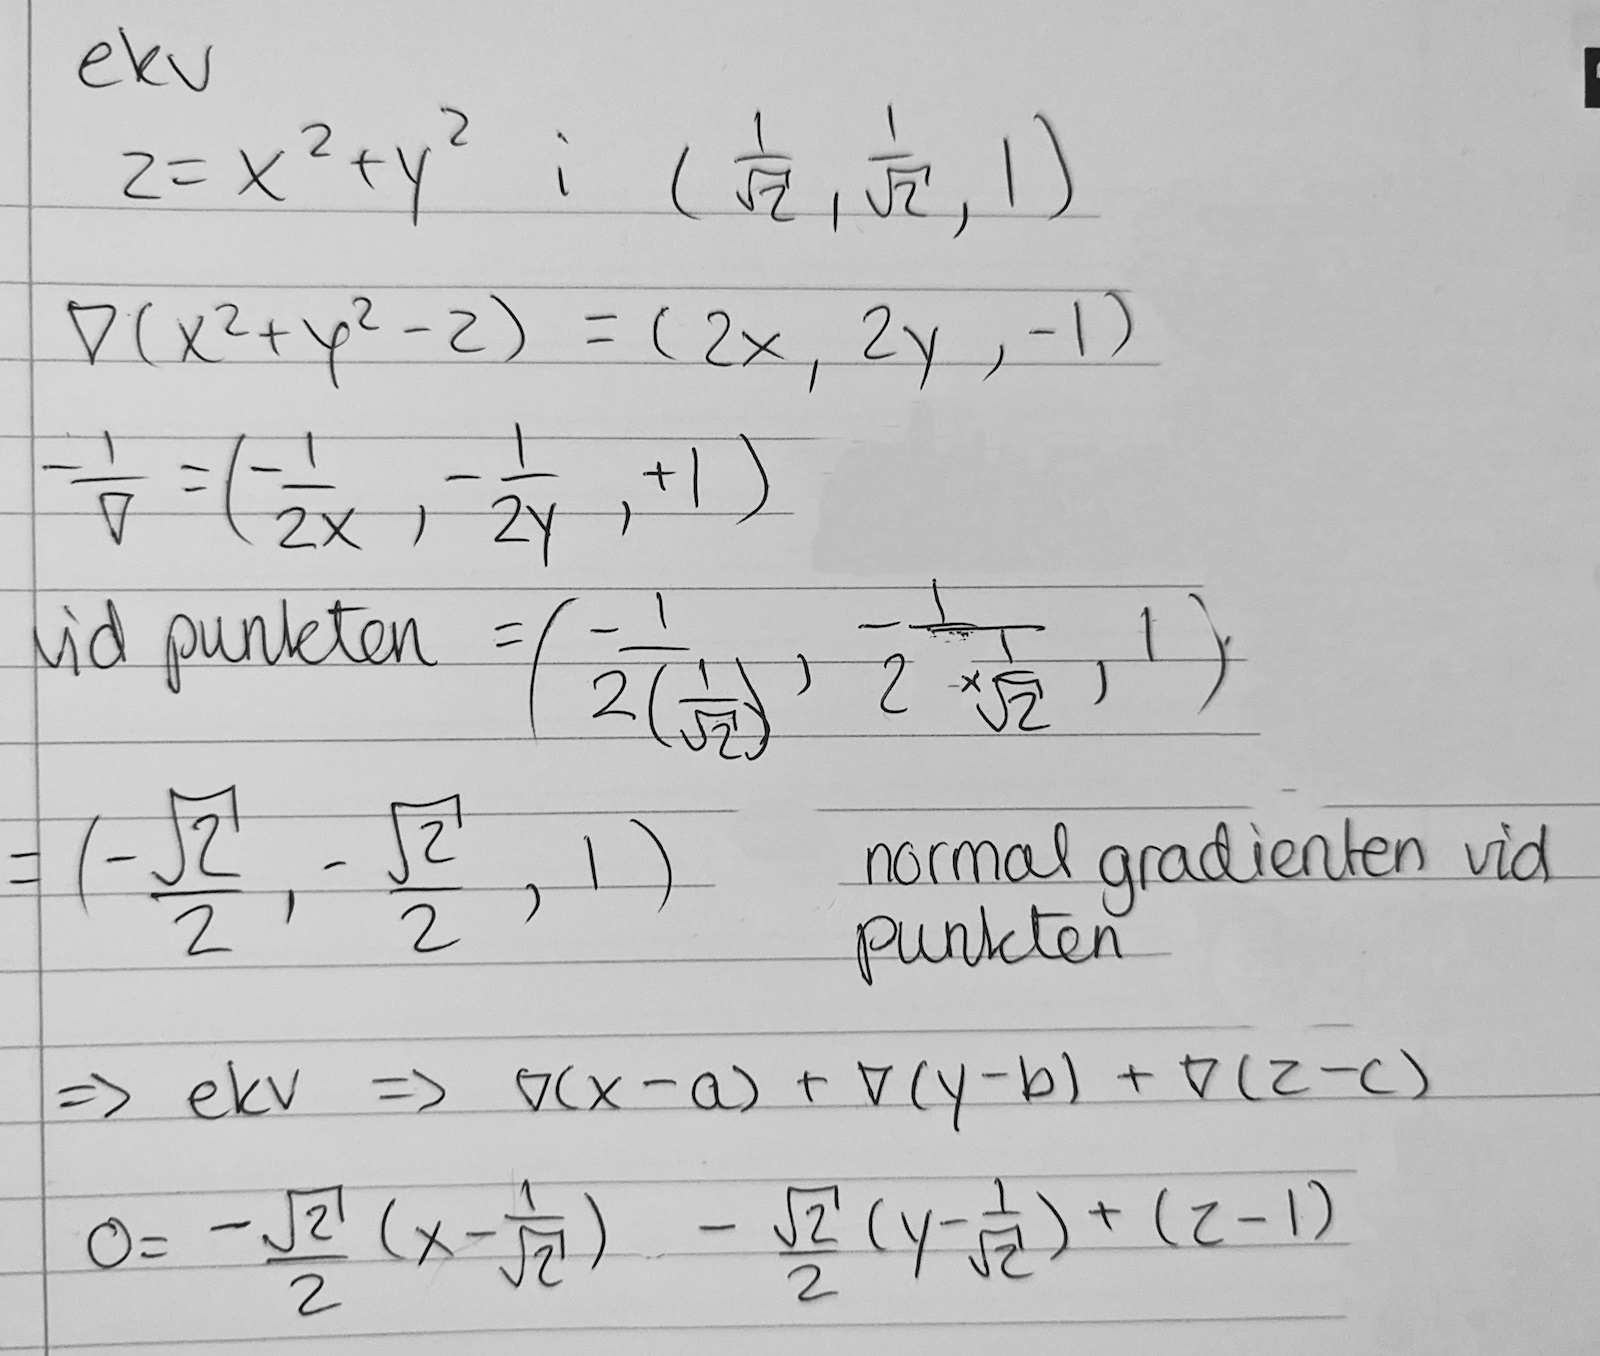 ekv
z = x² + y² i (1/√2, 1/√2, 1)
∇(x² + y² - z) = (2x, 2y, -1)
-1/∇ = (-1/2x, -1/2y, +1)
vid punkten = (-1/2(1/√2), -1/2×1/√2, 1)
= (-√2/2, -√2/2, 1) normal gradienten vid
punkten
=> ekv => ∇(x-a) + ∇(y-b) + ∇(z-c)
0 = -√2/2 (x - 1/√2) - √2/2 (y - 1/√2) + (z-1)